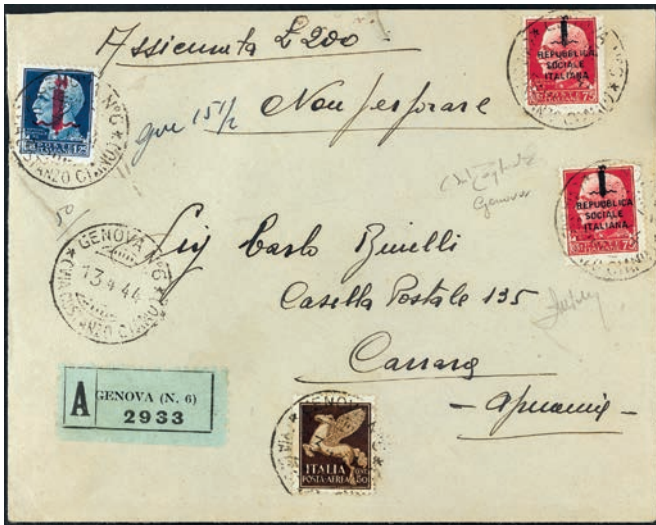 Assicurata £ 200
Non perforare
gre 15 1/2
REPUBBLICA
SOCIALE
ITALIANA
75
REPUBBLICA
SOCIALE
ITALIANA
75
Genova
50
GENOVA Nº6
13 4 44
(VIA COSTANZO CIANO)
Sig Carlo Binelli
Casella Postale 135
Carrara
- Apuania -
A GENOVA (N. 6)
2933
ITALIA
POSTA AEREA